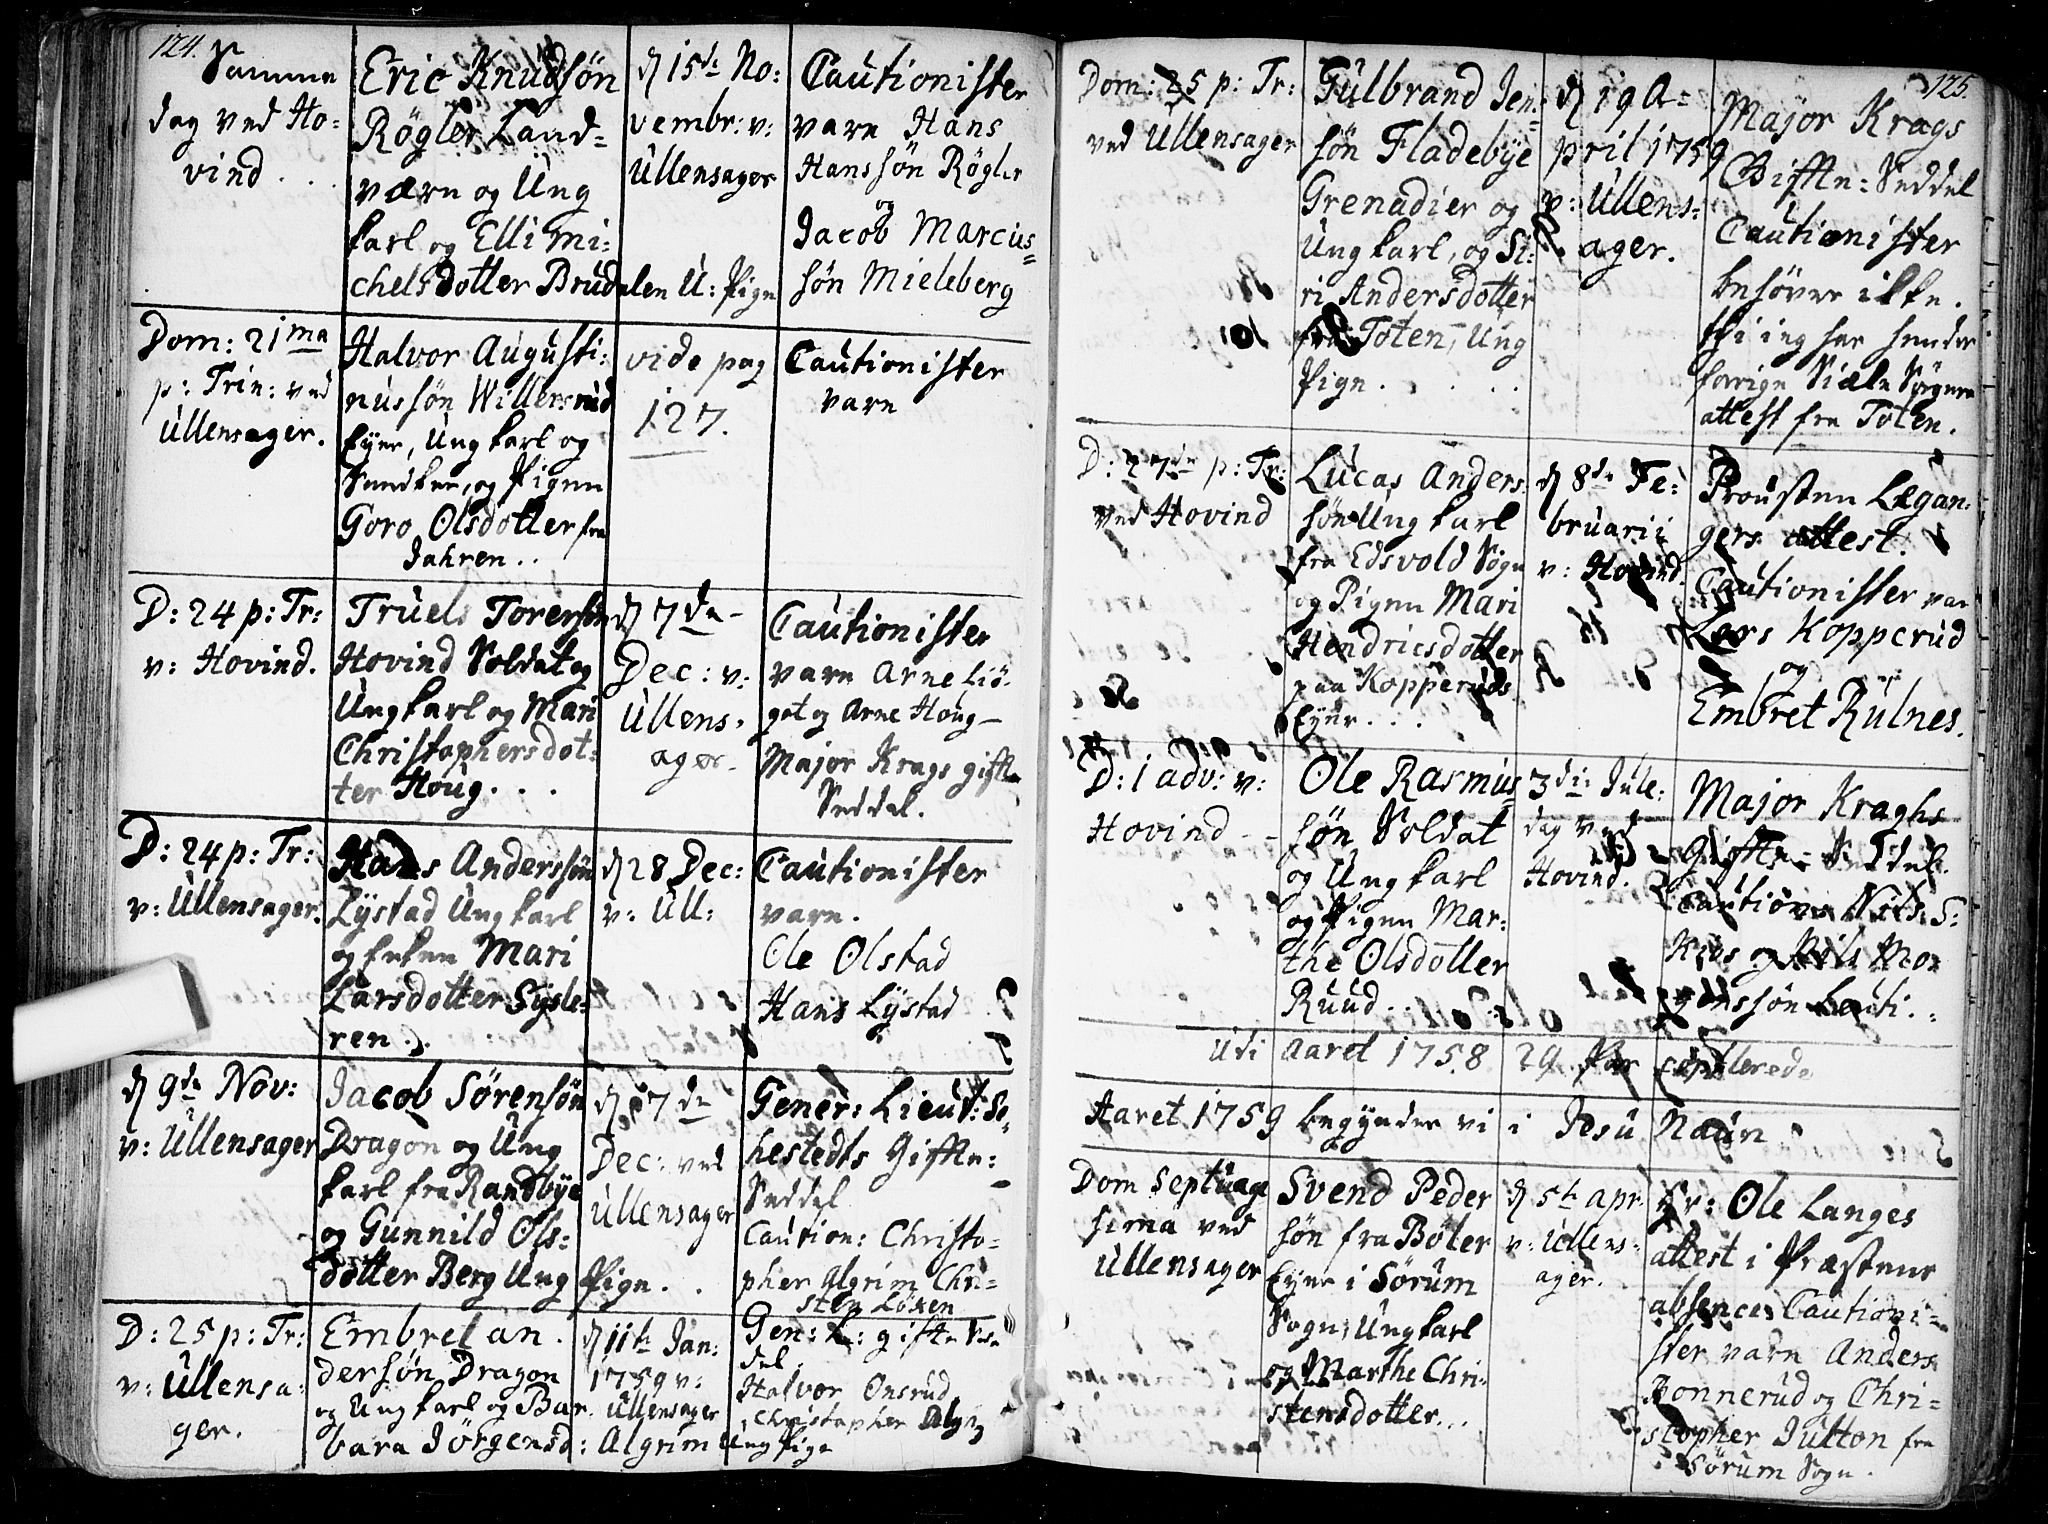 124.
Samme
dag ved Ho-
vind . . .
Eric Knudsøn
Røgler Land-
værn og Ung
karl og Elli Mi-
chelsdotter Brudalen U: Pige
d 15de No:
vembr: v:
Ullensager
Cautionister
vare Hans
Hanssøn Røgler
og
Jacob Marcus
søn Mieleberg
Dom: 21ma
p: Trin: ved
Ullensager.
Halvor Augusti:
nussøn Willersrud
Eyer, Ung karl og
Enckee, og Pigen
Goro Olsdotter fra
Jahren . .
vide pag
127.
Cautionister
vare
D: 24 p: Tr:
v: Hovind.
Truels Torersøn
Hovind Soldat og
Ung karl og Mari
Christophersdot-
ter Houg . . .
d 7de
Dec: v:
Ullens-
ager
Cautionister
vare Arne Liø-
got og Arne Houg
Major Krags gifte
Seddel.
D: 24 p: Tr:
v: Ullensager.
Hans Anderssøn
Lystad Ung karl
og Enken Mari
Larsdotter Sysle-
ren . .
d 28 Dec:
v: Ull:
Cautionister
vare.
Ole Olstad
Hans Lystad
d 9de Nov:
v: Ullensager
Jacob Sørensøn
Dragon og Ung
karl fra Randbye
og Gunnild Ols-
dotter Berg Ung Pige . .
d 7de
Dec: ved
Ullensager
Gener: Lieut: Se-
hestedts Gifte-
Seddel
Caution: Christo-
pher Algrim Chri-
sten Løken
D: 25 p: Tr:
v: Ullensa-
ger.
Embret An-
dersøn Dragon
og Ung karl og Bar-
bara Jörgensd: Algrim Ung Pige
d 11te Jan:
1759 v:
Ullensager
Gen: L: gifte Sed-
del.
Halvor Onsrud
Christopher Algrim
125.
Dom: 25 p: Tr:
ved Ullensager
Gulbrand Jen-
søn Fladebye
Grenadier og
Ung karl, og Si-
ri Andersdotter
fra Toten, Ung
Pige . . .
d 19 A-
pril 1759
v: Ullens-
ager.
Major Krags
Gifte-Seddel
Cautionister
behøver ikke.
thi jeg har hendes
forrige Siæle Sørgere
attest fra Toten.
D: 27de p: Tr:
ved Hovind
Lucas Anders
søn Ung karl
fra Edsvold Sogn
og Pigen Mari
Hendricsdotter
paa Kopperuds
Eyer . . .
d 8de Fe-
bruarii
v: Hovind.
Prousten Legan-
gers attest.
Cautionister var
Lars Kopperud
og
Embret Rulnes.
D: 1 adv: v:
Hovind
Ole Rasmus
søn Soldat
og Ung karl
og Pigen Mar-
the Olsdotter
Ruud . .
3die Jule-
dag ved
Hovind.
Major Kraghs
Gifte-Seddel.
Caution: Nils S:
Kios og Nils Mo
genssøn
Udi Aaret 1758 29 Par copulerede
Aaret 1759 begynder vi i Jesu Navn
Dom Septuage
sima ved
Ullensager
Svend Peder
søn fra Bøler
Eyer i Sørum
Sogn, Ung karl
og Marthe Chri-
stensdotter . . .
d 5te Apr.
v: Ullens-
ager.
Hr: Ole Langes
attest i Præstens
absence. Cautioni-
ster vare Anders
Bonnerud og Chri-
stopher Jultton fra
Sørum Sogn.